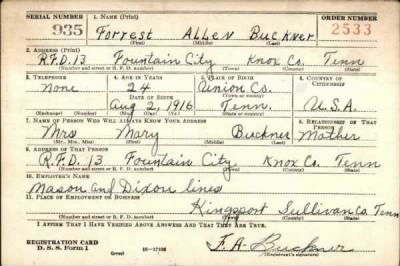 SERIAL NUMBER 1. NAME (Print) ORDER NUMBER
935 Forrest Allen Buckner 2533
(First) (Middle) (Last)
2. ADDRESS (Print)
R.F.D. 13 Fountain City Knox Co. Tenn
(Number and street or R. F. D. number) (Town) (County) (State)
3. TELEPHONE 4. AGE IN YEARS 5. PLACE OF BIRTH 6. COUNTRY OF CITIZENSHIP
none 24 Union Co.
DATE OF BIRTH (Town or county)
Aug 2, 1916 Tenn. U.S.A.
(Exchange) (Number) (Mo.) (Day) (Yr.) (State or country)
7. NAME OF PERSON WHO WILL ALWAYS KNOW YOUR ADDRESS 8. RELATIONSHIP OF THAT PERSON
Mrs Mary Buckner Mother
(Mr., Mrs., Miss) (First) (Middle) (Last)
9. ADDRESS OF THAT PERSON
R.F.D. 13 Fountain City Knox Co. Tenn
(Number and street or R. F. D. number) (Town) (County) (State)
10. EMPLOYER'S NAME
Mason and Dixon lines
11. PLACE OF EMPLOYMENT OR BUSINESS
Kingsport Sullivan Co. Tenn
(Number and street or R. F. D. number) (Town) (County) (State)
I AFFIRM THAT I HAVE VERIFIED ABOVE ANSWERS AND THAT THEY ARE TRUE.
REGISTRATION CARD
D. S. S. Form 1 (over) 16—17105 F. A. Buckner
(Registrant's signature)